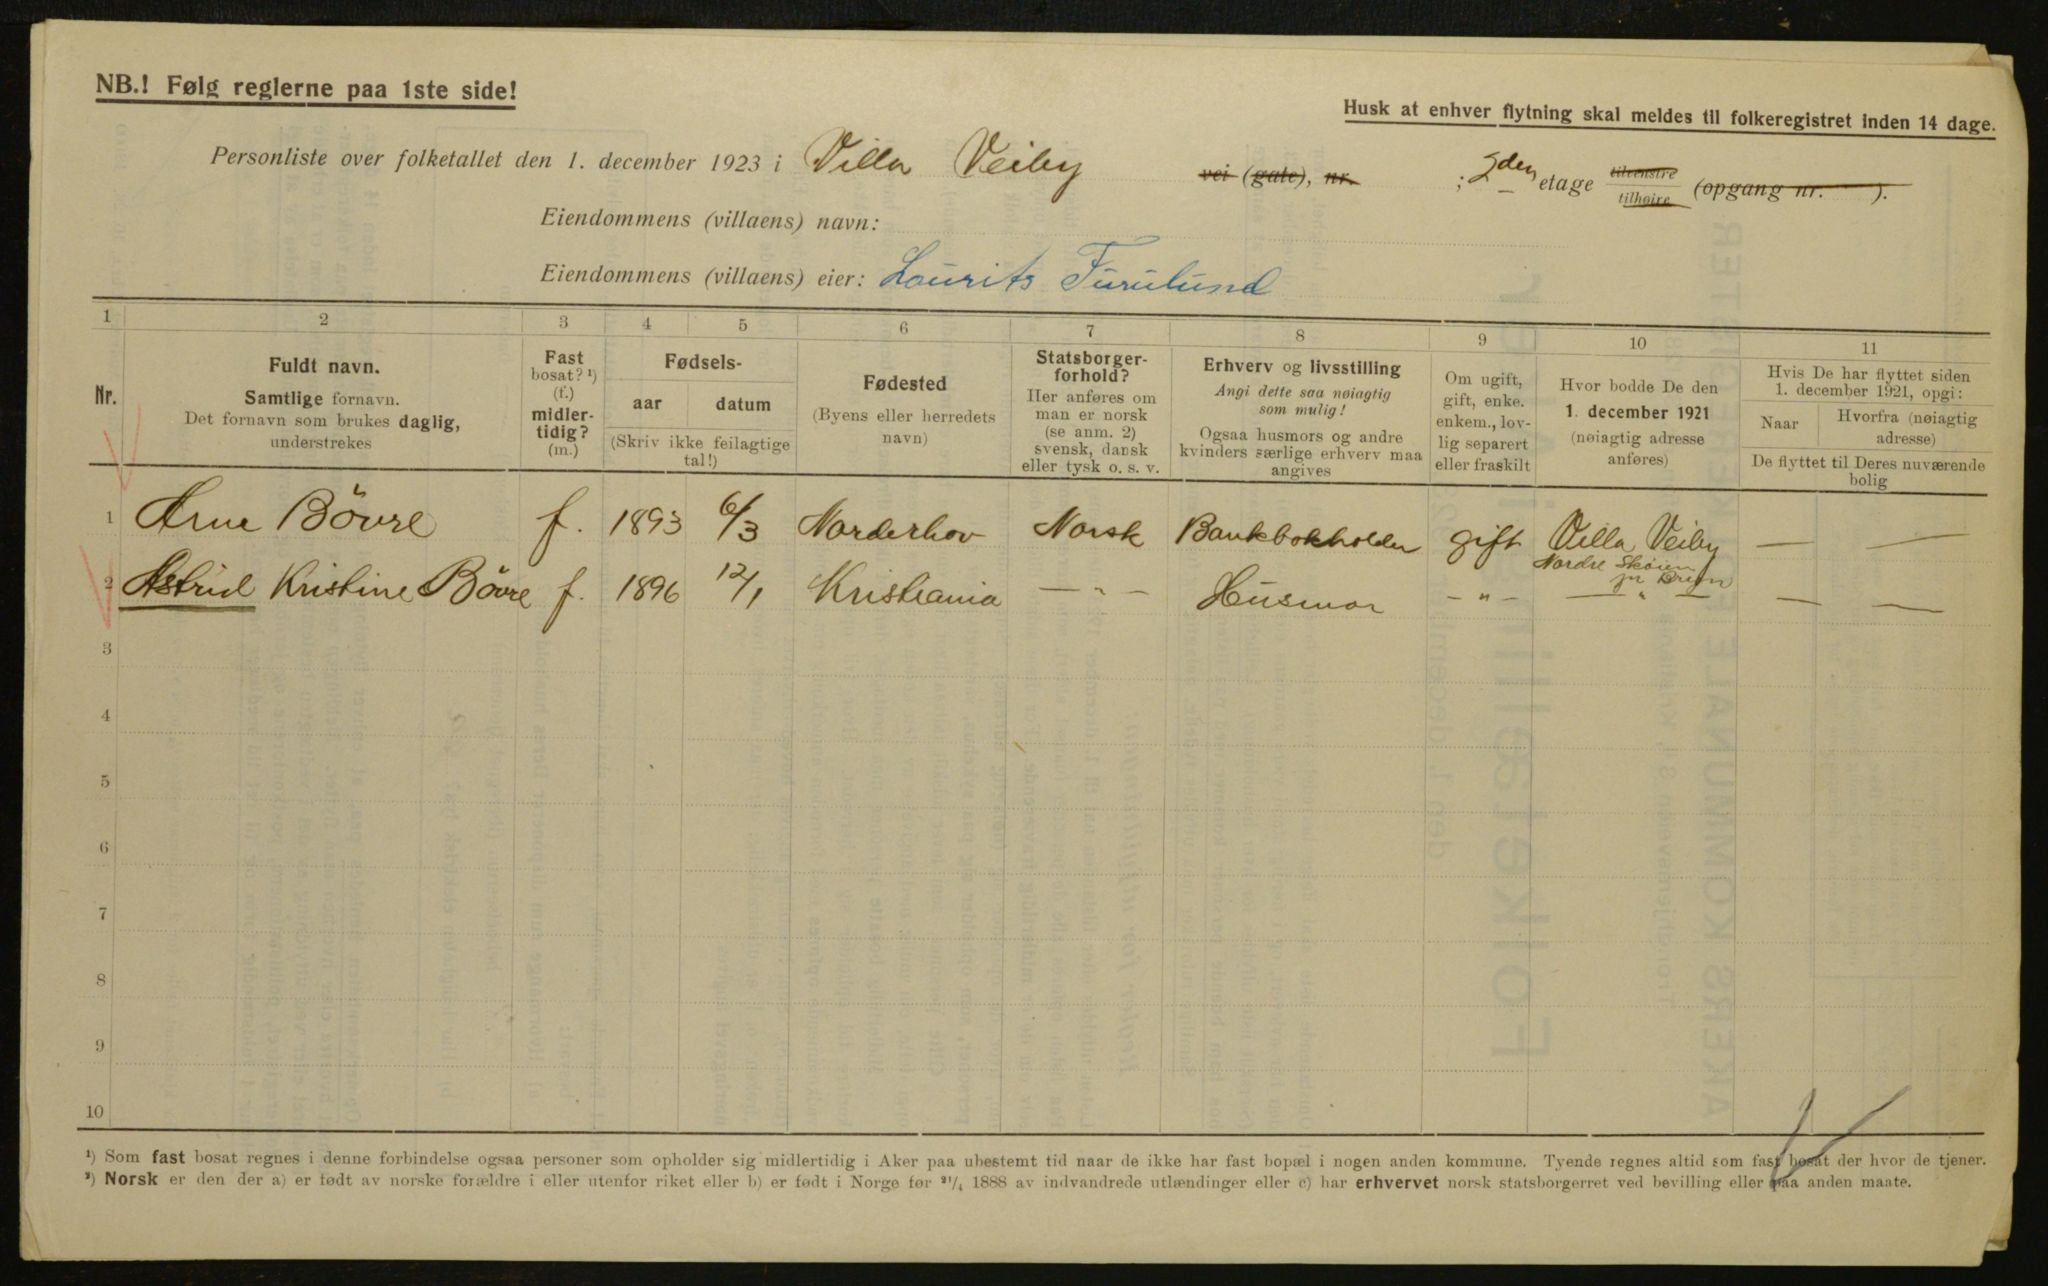 NB.! Følg reglerne paa 1ste side!
Husk at enhver flytning skal meldes til folkeregistret inden 14 dage.
Personliste over folketallet den 1. december 1923 i Villa Veiby vei (gate), nr. ; 2den etage tilvenstre tilhøire (opgang nr. ).
Eiendommens (villaens) navn:
Eiendommens (villaens) eier: Lourits Furulund
1 2 3 4 5 6 7 8 9 10 11
Nr.
Fuldt navn.
Samtlige fornavn.
Det fornavn som brukes daglig,
understrekes
Fast
bosat? ¹)
(f.)
midler-
tidig?
(m.)
Fødsels-
aar datum
(Skriv ikke feilagtige
tal!)
Fødested
(Byens eller herredets
navn)
Statsborger-
forhold?
Her anføres om
man er norsk
(se anm. 2)
svensk, dansk
eller tysk o. s. v.
Erhverv og livsstilling
Angi dette saa nøiagtig
som mulig!
Ogsaa husmors og andre
kvinders særlige erhverv maa
angives
Om ugift,
gift, enke.
enkem., lov-
lig separert
eller fraskilt
Hvor bodde De den
1. december 1921
(nøiagtig adresse
anføres)
Hvis De har flyttet siden
1. december 1921, opgi:
Naar Hvorfra (nøiagtig
adresse)
De flyttet til Deres nuværende
bolig
1 Arne Bövre f. 1893 6/3 Norderhov Norsk Bankbokholder gift Villa Veiby — —
Nordre Skøien
pr Bryn
2 Astrid Kristine Bövre f. 1896 12/1 Kristiania — " — Husmor — " — — " — — —
3
4
5
6
7
8
9
10
¹) Som fast bosat regnes i denne forbindelse ogsaa personer som opholder sig midlertidig i Aker paa ubestemt tid naar de ikke har fast bopæl i nogen anden kommune. Tyende regnes altid som fast bosat der hvor de tjener.
²) Norsk er den der a) er født av norske forældre i eller utenfor riket eller b) er født i Norge før ²¹/₄ 1888 av indvandrede utlændinger eller c) har erhvervet norsk statsborgerret ved bevilling eller paa anden maate.